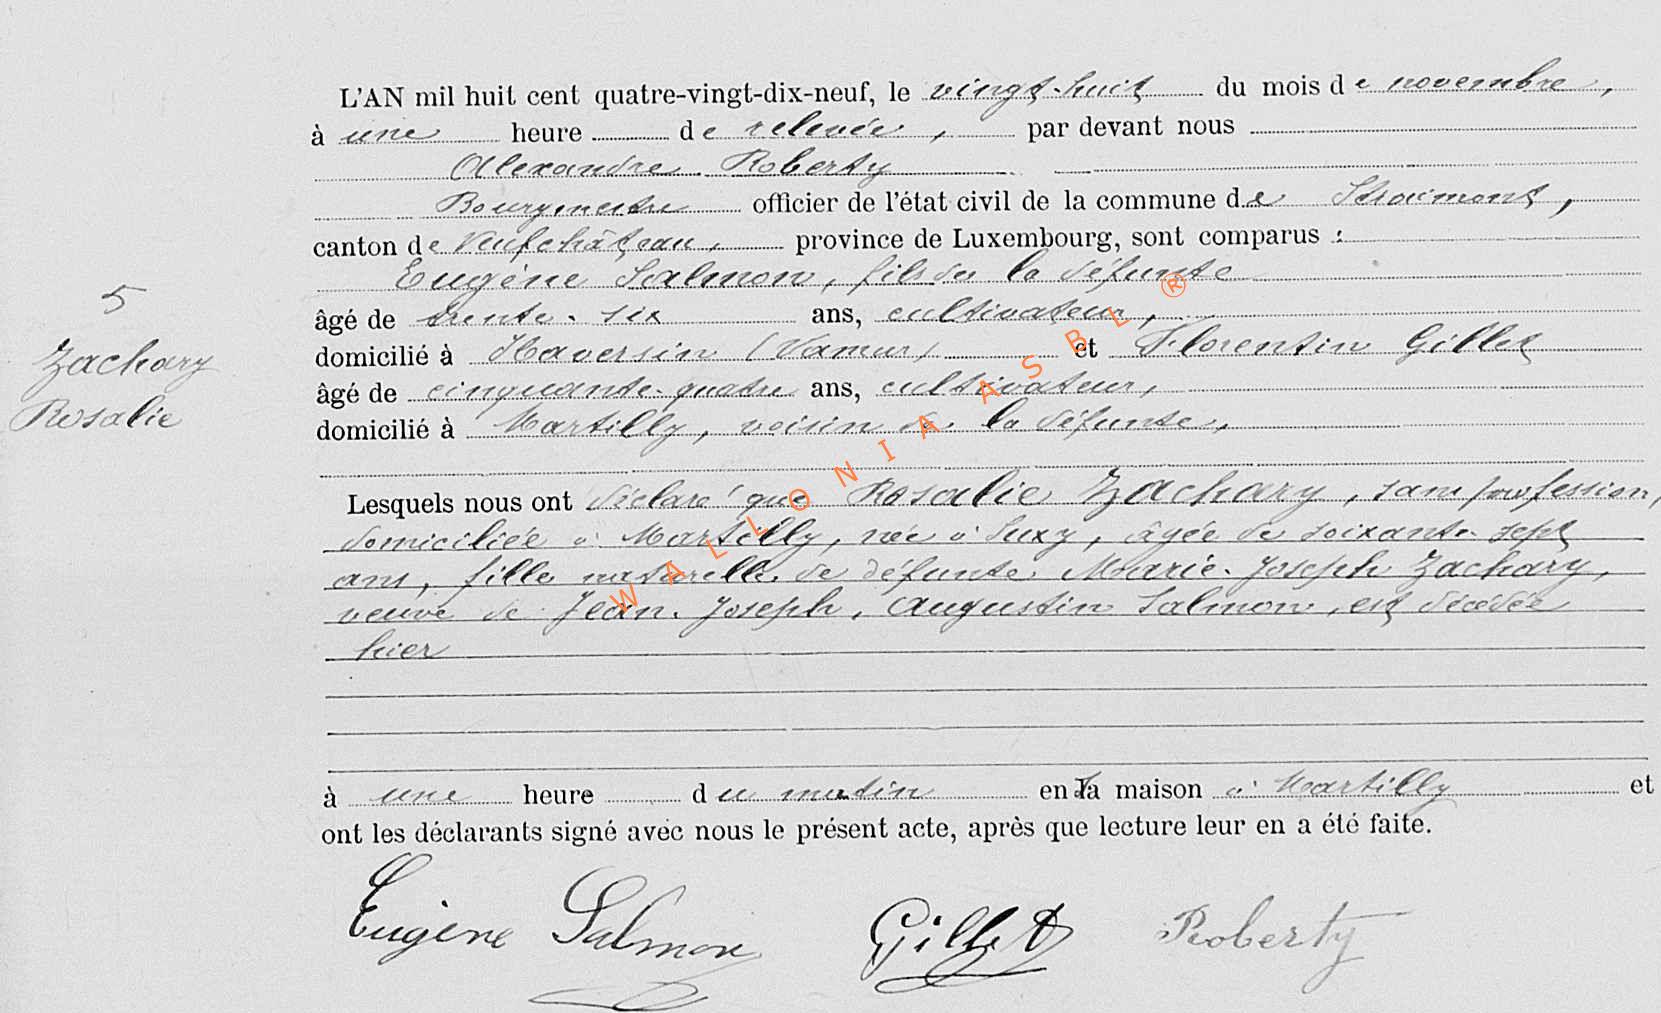 L'AN mil huit cent quatre-vingt-dix-neuf, le vingt-huit du mois de novembre,
à une heure de relevée, par devant nous
Alexandre Roberty
Bourgmestre officier de l'état civil de la commune de Straimont,
canton de Neufchâteau, province de Luxembourg, sont comparus :
Eugène Salmon, fils de la défunte
âgé de trente-six ans, cultivateur,
domicilié à Haversin (Namur) et Florentin Gillet
âgé de cinquante-quatre ans, cultivateur,
domicilié à Martilly, voisin de la défunte,
5
Zachary
Rosalie
Lesquels nous ont déclaré que Rosalie Zachary, sans profession,
domiciliée à Martilly, née à Suxy, âgée de soixante-sept
ans, fille naturelle de défunte Marie-Joseph Zachary,
veuve de Jean-Joseph, Augustin Salmon, est décédée
hier
à une heure du matin en la maison à Martilly et
ont les déclarants signé avec nous le présent acte, après que lecture leur en a été faite.
Eugène Salmon Gillet Roberty
WALLONIA ASBL ®